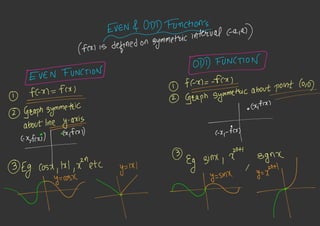 EVEN & ODD Functions
(f(x) is defined on symmetric interval (-a,a))
EVEN FUNCTION
① f(-x) = f(x)
② Graph symmetric
about line y-axis
(-x,f(x))
(x,f(x))
③ Eg cosx, |x|, x²ⁿ etc
y=cosx
y=|x|
ODD FUNCTION
① f(-x) = -f(x)
② Graph symmetric about point (0,0)
(x,f(x))
(-x,-f(x))
③ Eg sinx, x²ⁿ⁺¹, sgnx
y=sinx
y=x²ⁿ⁺¹